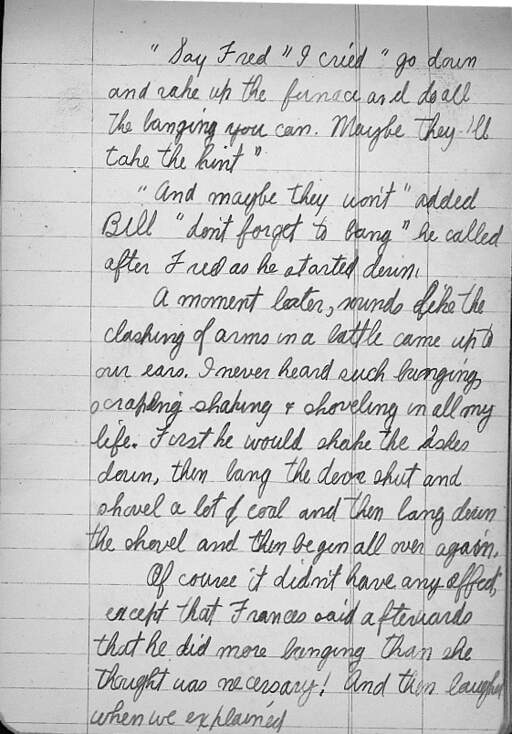 " Say Fred " I cried " go down
and rake up the furnace and do all
the banging you can. Maybe they'll
take the hint "
" And maybe they won't " added
Bill " don't forget to bang " he called
after Fred as he started down.
A moment later, sounds like the
clashing of arms in a battle came up to
our ears. I never heard such banging,
scraping shaking & shoveling in all my
life. First he would shake the ashes
down, then bang the door shut and
shovel a lot of coal and then bang down
the shovel and then begin all over again.
Of course it didn't have any effect,
except that Frances said afterwards
that he did more banging than she
thought was necessary! And then laughed
when we explained